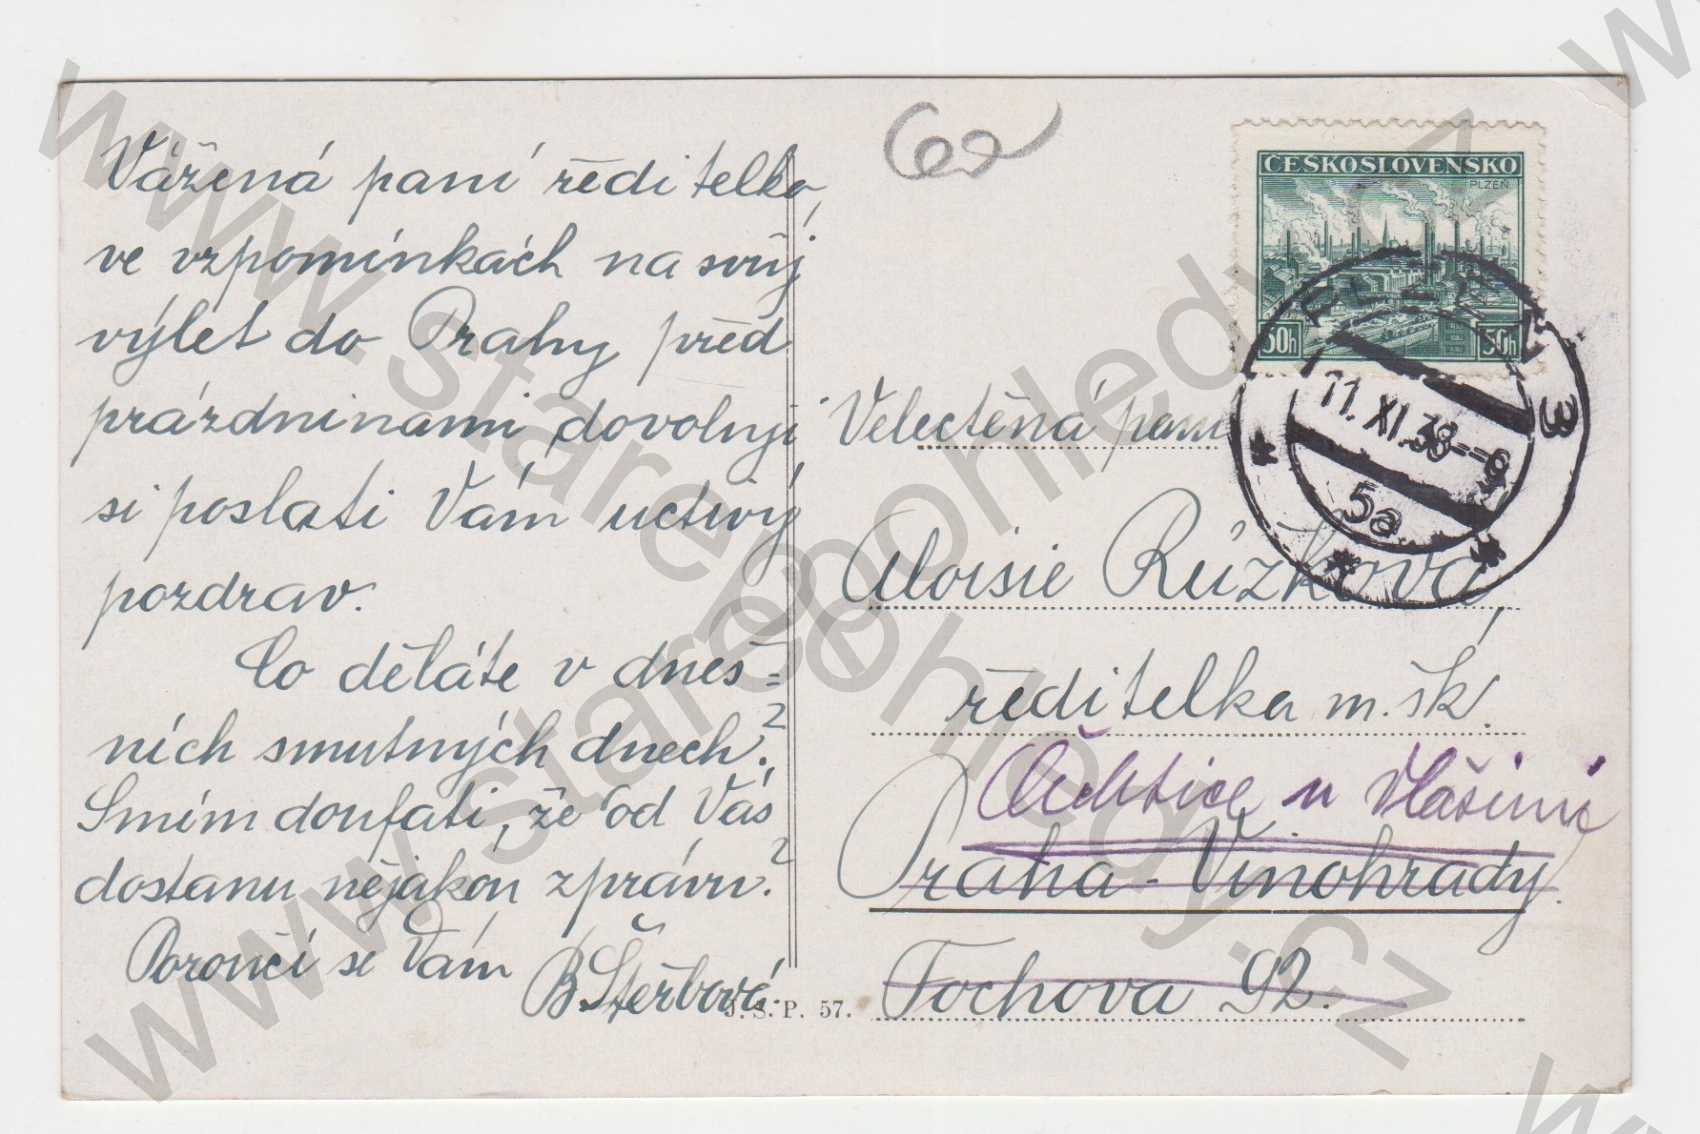 Vážená paní ředitelko,
ve vzpomínkách na svůj
výlet do Prahy před
prázdninami dovoluji
si poslati Vám uctivý
pozdrav.
Co děláte v dneš=
ních smutných dnech?
Smím doufati, že od Vás
dostanu nějakou zprávu?
Poroučí se Vám
B. Štěrbová.
J. S. P. 57.
ČESKOSLOVENSKO
PLZEŇ
50h 50h
PLZEŇ 3
11. XI. 38 -- 6
5a
Velectěná paní
Aloisie Růžková,
ředitelka m. šk.
u Vlašimi
Praha - Vinohrady.
Fochova 92.
www.starepohledy.cz
www.starepohledy.cz